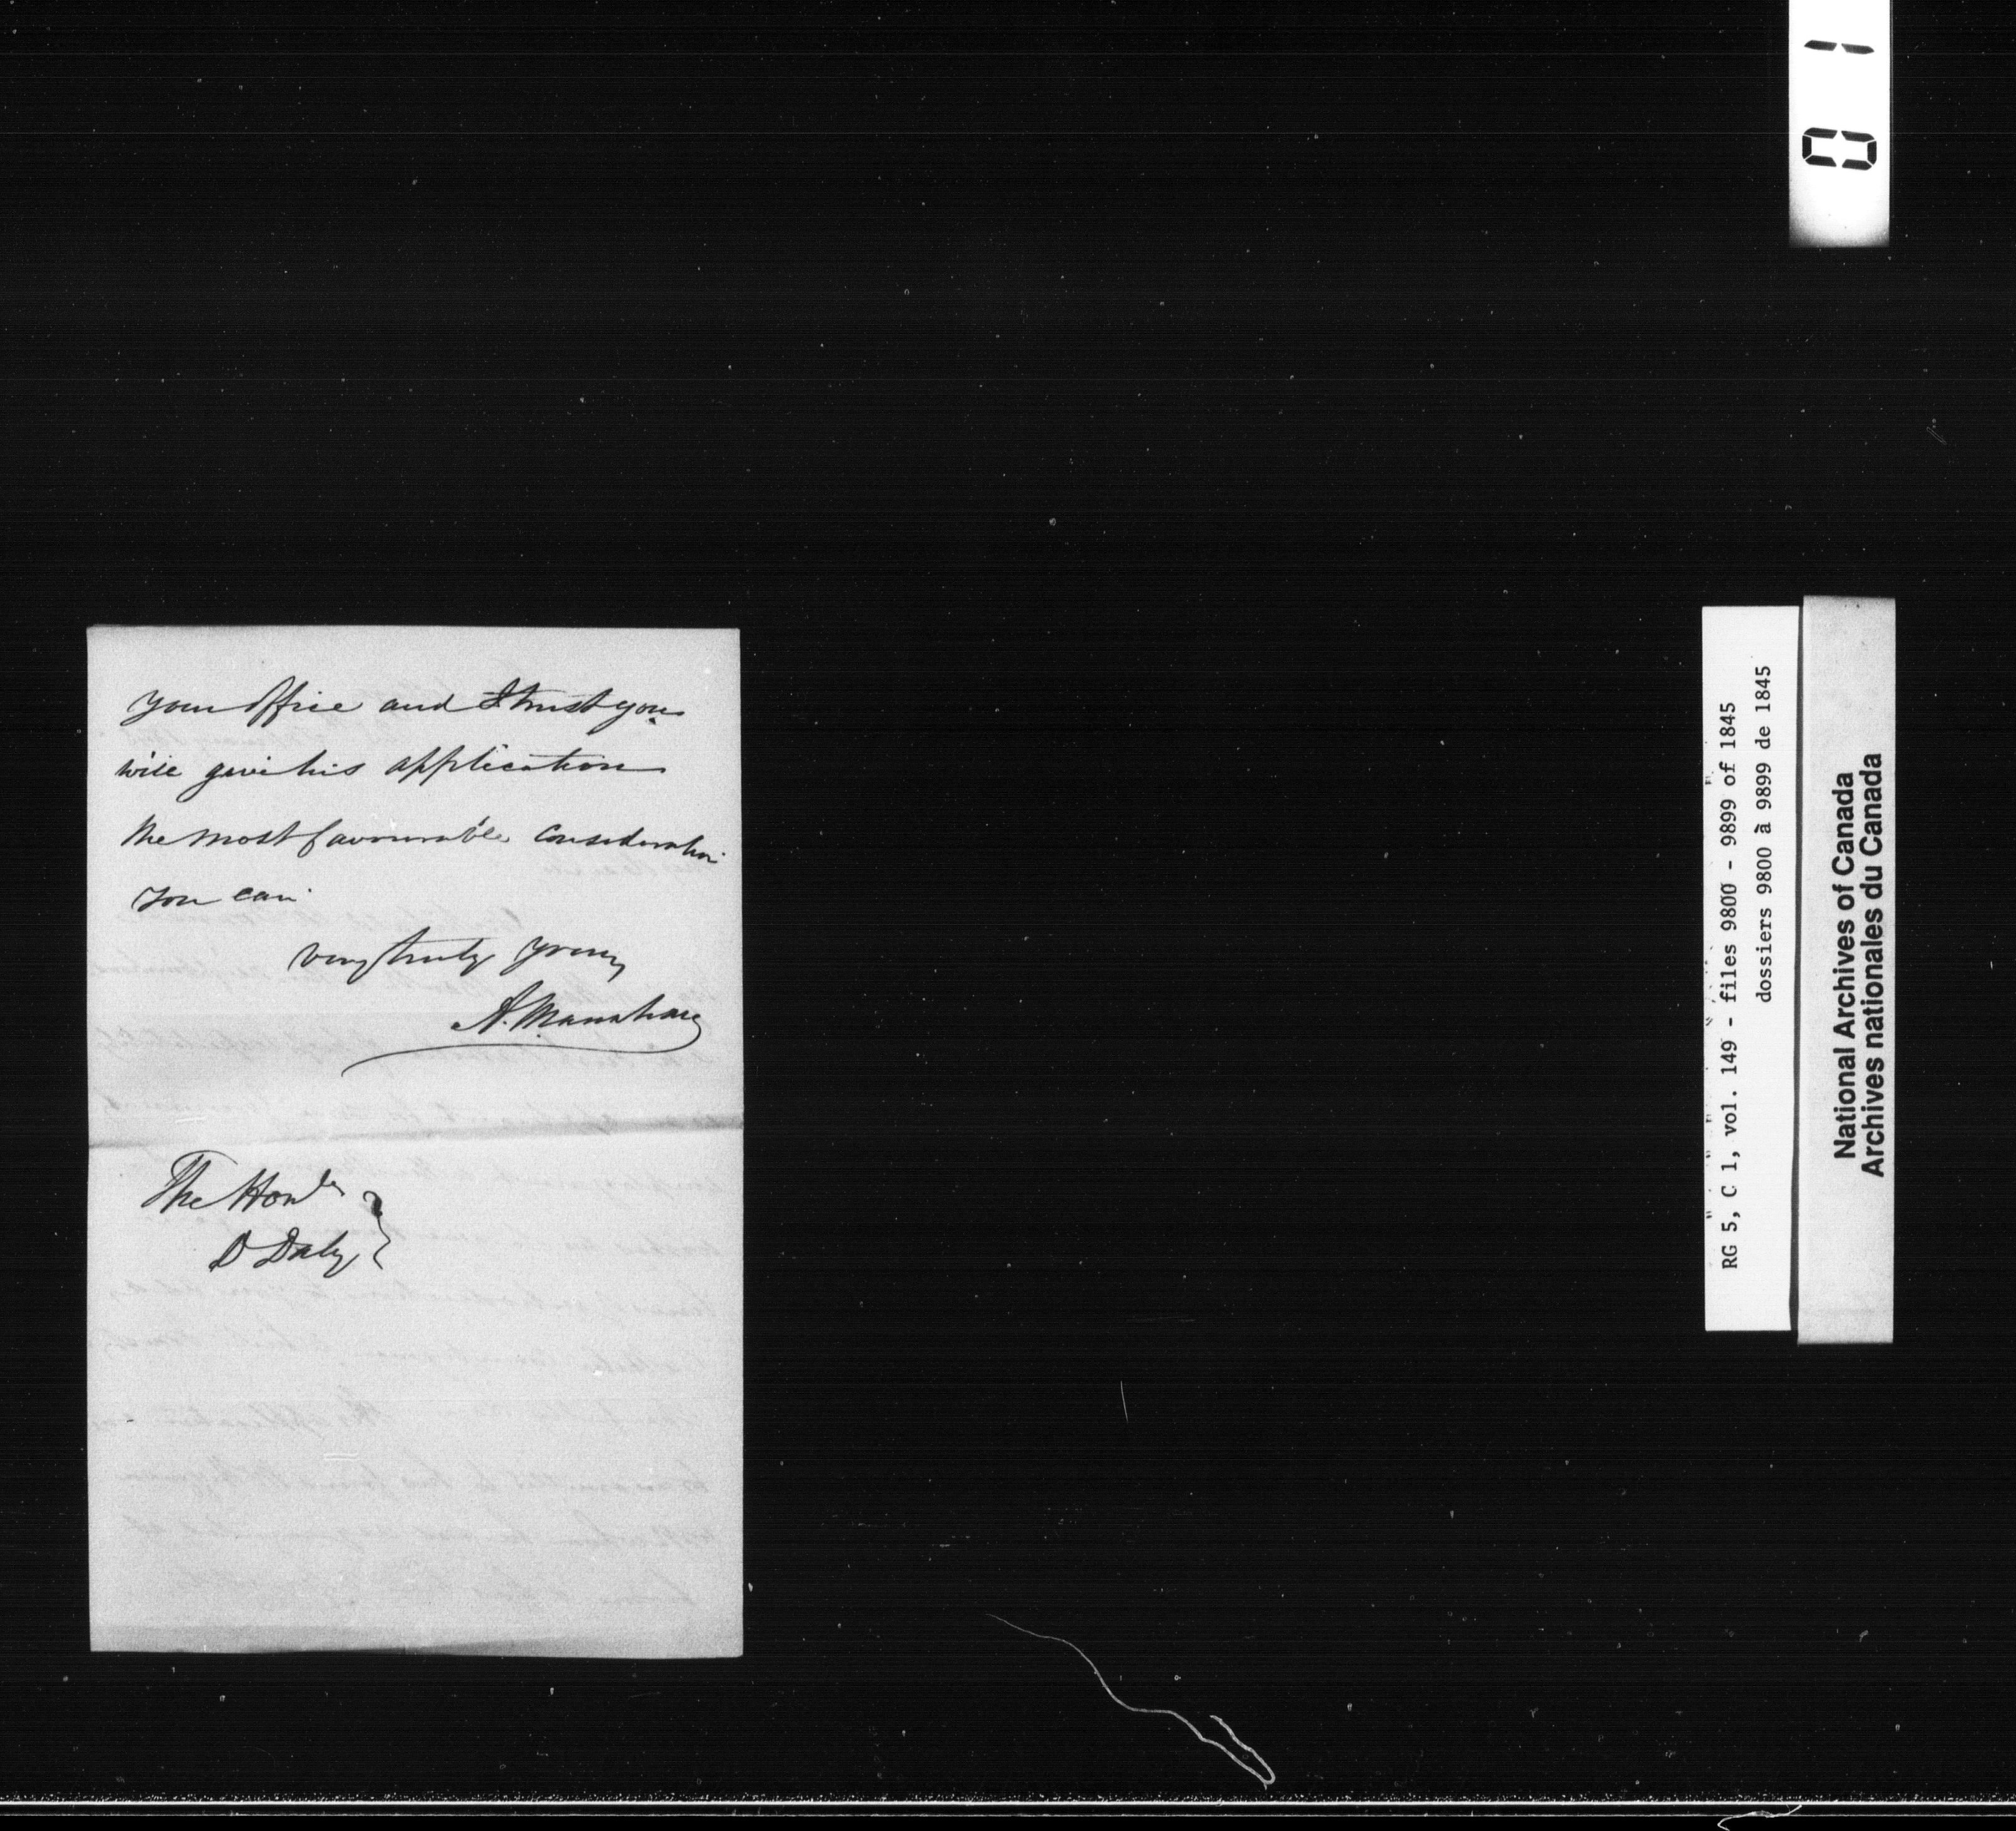 your office and I trust you
will give his application
the most favourable consideration
you can
very truly yours
A. Manahan
The Honble
D Daly
RG 5, C 1, vol. 149 - files 9800 - 9899 of 1845
dossiers 9800 à 9899 de 1845
National Archives of Canada
Archives nationales du Canada
01